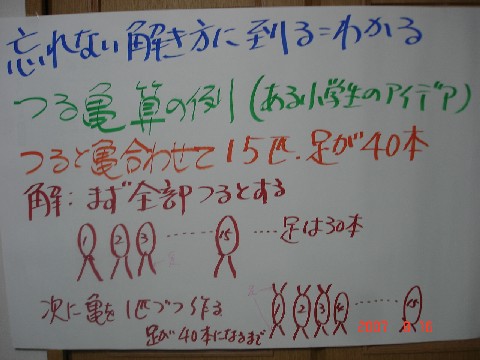 忘れない解き方に到る=わかる
つる亀算の例(ある小学生のアイデア)
つると亀合わせて15匹.足が40本
解:まず全部つるとする
1 2 3 ...... 15 .... 足は30本
次に亀を1匹づつ作る
足が40本になるまで
1 2 3 4 ...... 15